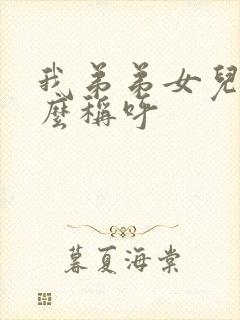 我弟弟女兒
麼稱呼
暮夏海棠